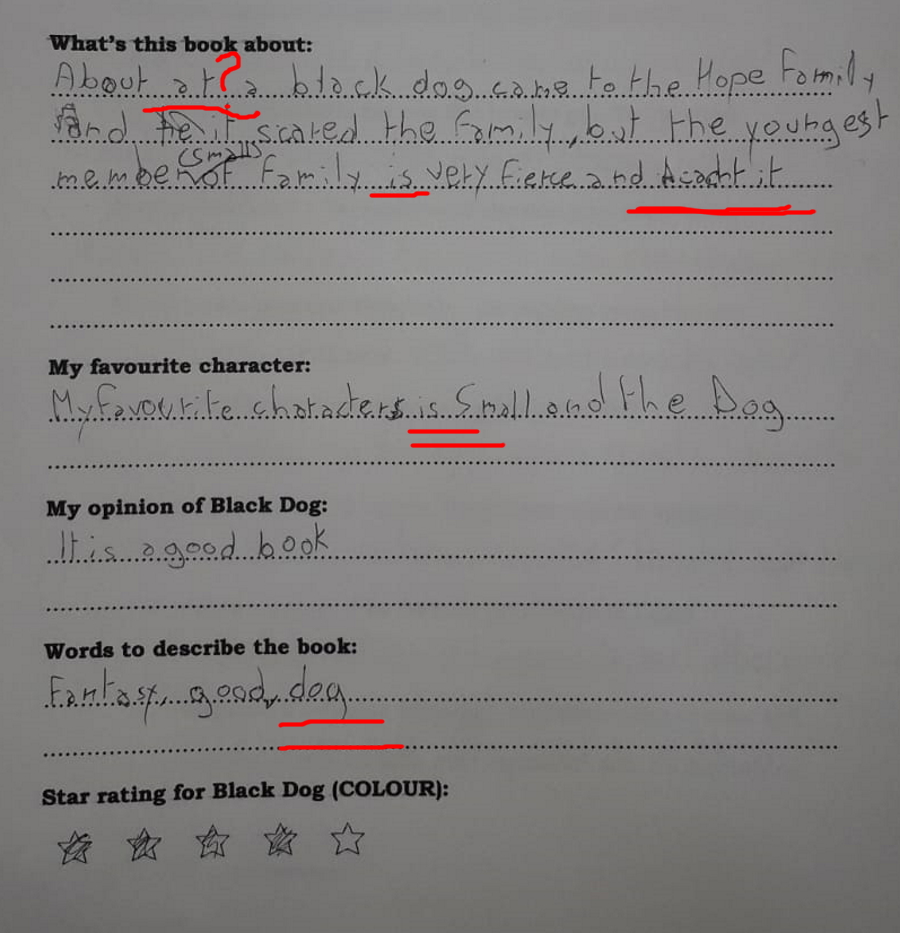 What's this book about:
About at ? a black dog came to the Hope Family
and it scared the family, but the youngest
(small)
member of family is very fierce and Acacht it
My favourite character:
My favourite characters is Small and the Dog
My opinion of Black Dog:
It is a good book
Words to describe the book:
Fantasy, good, dog
Star rating for Black Dog (COLOUR):